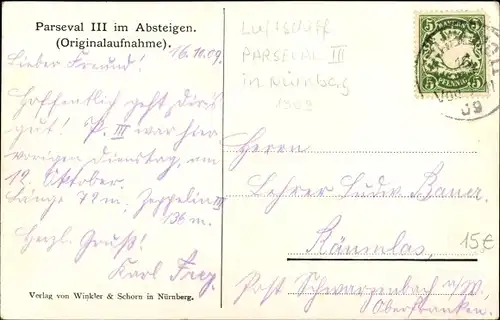 Parseval III im Absteigen.
(Originalaufnahme).
16.10.09.
Lieber Freund!
Hoffentlich geht dir's
gut! P. III war hier
vorigen Dienstag, am
12. Oktober.
Länge 72 m; Zeppelin III
136 m.
Herzl. Gruß!
Karl Frey.
Verlag von Winkler & Schorn in Nürnberg.
Luftschiff
PARSEVAL III
in Nürnberg
1909
5 BAYERN 5
5 PFENNIG 5
09
Herrn
Lehrer Ludw. Bauer.
Räumlas,
15€
Post Schwarzenbach a/W.
Oberfranken.